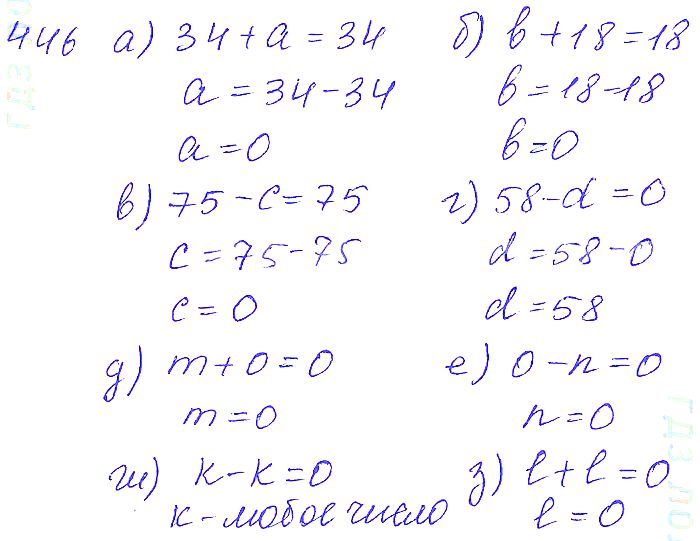 446 а) 34 + a = 34 б) b + 18 = 18
a = 34 - 34 b = 18 - 18
a = 0 b = 0
в) 75 - c = 75 г) 58 - d = 0
c = 75 - 75 d = 58 - 0
c = 0 d = 58
д) m + 0 = 0 е) 0 - n = 0
m = 0 n = 0
ж) k - k = 0 з) l + l = 0
k - любое число l = 0